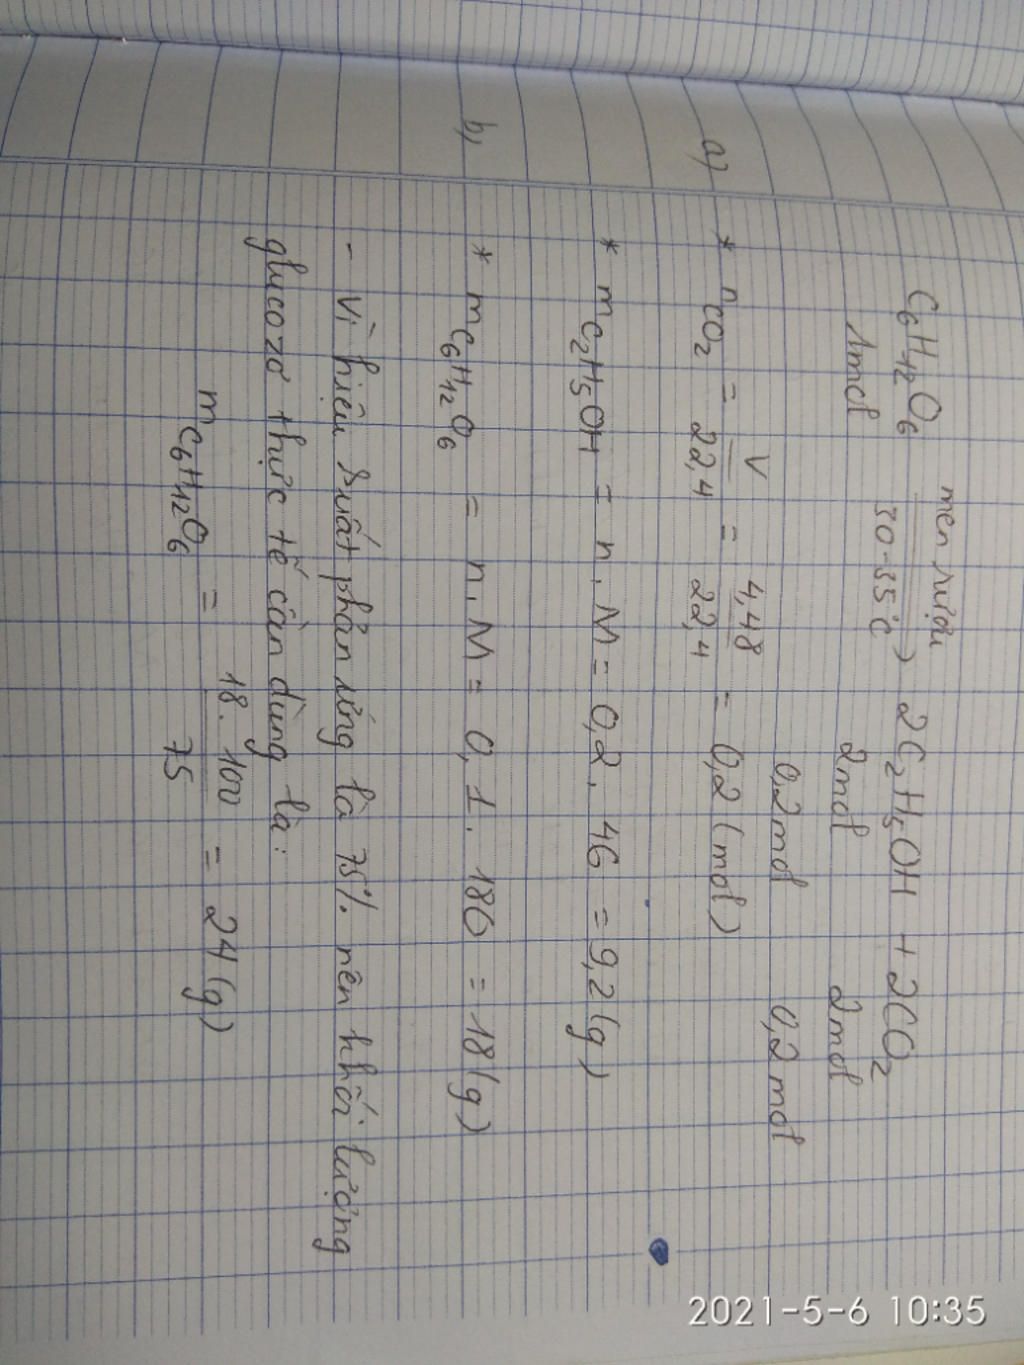 men rượu
C6H12O6 ────→ 2C2H5OH + 2CO2
30-35°C
1mol 2mol 2mol
0,2mol 0,2mol
a) * nCO2 = V/22,4 = 4,48/22,4 = 0,2 (mol)
* mC2H5OH = n.M = 0,2. 46 = 9,2 (g)
b, * mC6H12O6 = n.M = 0,1. 180 = 18 (g)
- Vì hiệu suất phản ứng là 75% nên khối lượng
glucozơ thực tế cần dùng là:
mC6H12O6 = 18.100/75 = 24 (g)
2021-5-6 10:35